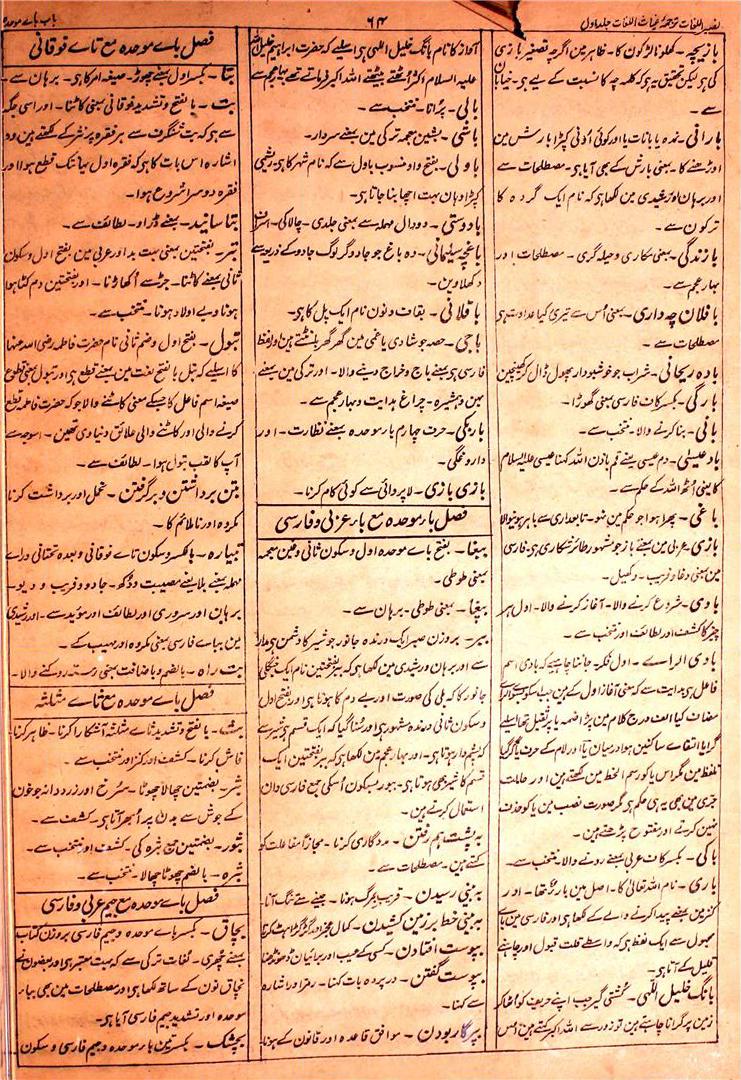 باب باے موحدہ
۶۴
لغات ترجمۂ غیاث اللغات جلد اول
بازیچہ۔ کھلونا لڑکون کا۔ ظاہر مین اگرچہ تصغیر بازی
کی ہو لیکن تحقیق یہ ہو کہ کلمہ چہ کا نسبت کے لیے ہی۔ خیابان
سے۔
بارانی۔ نمدہ یا بانات یا اور کوئی اونی کپڑا بارش مین
اوڑھنے کا۔ بمعنی بارش کے بھی آیا ہی۔ مصطلحات سے
اور برہان اور رشیدی مین لکھا ہی کہ نام ایک گروہ کا
ترکون سے۔
بازندگی۔ بمعنی مکاری وحیلہ گری۔ مصطلحات اور
بہار عجم سے۔
بافلان چہ داری۔ بمعنی اُس سے تیری کیا عداوت ہی
مصطلحات سے۔
بادہ ریحانی۔ شراب جو خوشبودار پھول ڈال کر کھینچین
بارگی۔ بکسر کاف فارسی بمعنی گھوڑا۔
بانی۔ بنا کرنے والا۔ منتخب سے۔
باد عیسیٰ۔ دم عیسیٰ یعنے قم باذن اللہ کہنا عیسیٰ علیہ السلام
کا یعنی اُٹھ اللہ کے حکم سے۔
باغی۔ پھرا ہوا جو حکم مین نہو۔ تابعداری سے باہر ہونیوالا
بازی۔ عربی مین یعنے باز جو مشہور طائر شکاری ہی۔ فارسی
مین بمعنی دغا وفریب۔ دکھیل۔
بادی۔ شروع کرنے والا۔ آغاز کرنے والا۔ اول ہر
چیز کا کشف اور لطائف اور منتخب سے۔
بادی الراے۔ اول فکر۔ جاننا چاہیے کہ بادی اسم
فاعل ہی بدایت سے کہ بمعنی آغاز اول کے ہین
تلفظ مین مگر اس یا کو رسم الخط مین لکھتے ہین اور حالت
جری مین بھی یہ ہی حکم ہی مگر صورت نصب مین یا کو حذف
نہین کرتے اور مفتوح پڑھتے ہین۔
باکی۔ بکسر کاف عربی یعنے رونے والا۔ منتخب سے۔
باری۔ نام اللہ تعالیٰ کا۔ اصل مین بارئ تھا۔ اور
کنز مین یعنے پیدا کرنے والے کے لکھا ہی اور فارسی مین یاے
مجہول سے ایک لفظ ہی کہ واسطے قلت قبول اور چاہنے
قلیل کے آتا ہی۔
بانگ خلیل اللہی۔ کشتی گیر جب اپنے حریف کو اُٹھا کر
زمین پر گرانا چاہتے ہین تو زور سے اللہ اکبر کہتے ہین اُس
آواز کا نام بانگ خلیل اللہی ہی اسلیے کہ حضرت ابراہیم خلیل اللہ
علیہ السلام اکثر اُٹھتے بیٹھتے اللہ اکبر فرماتے تھے بہار عجم سے
بالی۔ پرانا۔ منتخب سے۔
باشی۔ بشین معجمہ ترکی مین یعنے سردار۔
باولی۔ بفتح واو منسوب باول سے کہ نام شہر کا ہی۔ ریشمی
کپڑا وہان بہت اچھا بنا جاتا ہی۔
بادوستی۔ دودال مہملہ سے بمعنی جلدی۔ چالاکی۔
باغچہ سلیمانی۔ وہ باغ جو جادوگر لوگ جادو کے ذریعہ سے
دکھلاوین۔
باقلانی۔ بقاف ونون نام ایک پل کا ہی۔
باجی۔ حصہ جو شادی یا غمی مین گھر گھر بانٹتے ہین اور لفظ
فارسی ہی یعنے باج وخراج دینے والا۔ اور ترکی مین یعنے
بہن وہمشیرہ۔ چراغ ہدایت وبہار عجم سے۔
باریکی۔ حرف چہارم بار موحدہ یعنے نظارت۔ اور
داروغگی۔
بازی بازی۔ لاپروائی سے کوئی کام کرنا۔
فصل بار موحدہ مع بار عربی وفارسی
ببغا۔ بفتح باے موحدہ اول وسکون ثانی وغین معجمہ
بمعنی طوطی۔
بپغا۔ بمعنی طوطی۔ برہان سے۔
ببر۔ بروزن صبر ایک درندہ جانور جو شیر کا دشمن ہی بہار
سے اور برہان ورشیدی مین لکھا ہی کہ ببر بفتحتین نام ایک جنگلی
جانور کا کہ بلی کی صورت اور بے دم کا ہوتا ہی اور بفتح اول
وسکون ثانی درندہ مشہور ہی اور سُنا گیا کہ ایک قسم ہی شیر سے
کہ پشم دار ہوتا ہی۔ اور بہار عجم مین لکھا ہی کہ ببر بفتحتین ایک
قسم کا شیر بھی ہوتا ہی۔ ببور بسکون اُسکی جمع فارسی دان
استعمال کرتے ہین۔
بہ پشت ہم رفتن۔ مددگاری کرنا۔ مجازاً مفاعلت کو
کہتے ہین۔ مصطلحات سے۔
بہ بینی رسیدن۔ قریب بمرگ ہونا۔ جینے سے تنگ آنا۔
بہ بینی خط بر زمین کشیدن۔ کمال عجز اور گڑگڑاہٹ کرنا
بپوست افتادن۔ کسی کے عیب اور برائیان ڈھونڈھنا
بپوست گفتن۔ در پردہ بات کہنا۔ رمز اور اشارہ
سے کہنا۔
بپرکار بودن۔ موافق قاعدہ اور قانون کے ہونا۔
فصل باے موحدہ مع تاے فوقانی
بتا۔ بکسر اول یعنے چھوڑ۔ صیغہ امر کا ہی۔ برہان سے۔
بت۔ بالفتح وتشدید فوقانی بمعنی کاٹنا۔ اور اسی جگہ
سے ہی کہ بت شنگرف سے ہر فقرہ پر نثر کے لکھتے ہین وہ
اشارہ اس بات کا ہی کہ فقرہ اول یہانتک قطع ہوا اور
فقرہ دوسرا شروع ہوا۔
بتاسانید۔ یعنے ڈراو۔ لطائف سے۔
بتر۔ بفتحتین بمعنی بہت بد اور عربی مین بفتح اول وسکون
ثانی یعنے کاٹنا۔ جڑ سے اُکھاڑنا۔ اور بفتحتین دم کٹا ہوا
ہونا وبے اولاد ہونا۔ منتخب سے۔
بتول۔ بفتح اول وضم ثانی نام حضرت فاطمہ رضی اللہ عنہا
کا اسلیے کہ بتل بالفتح لغت مین یعنے قطع ہی اور بتول بمعنی قطوع
صیغہ اسم فاعل کا جسکے معنی کاٹنے والا جو کہ حضرت فاطمہ قطع
کرنے والی اور کاٹنے والی علائق دنیاوی تھین۔ اسوجہ سے
آپ کا لقب بتول ہوا۔ لطائف سے۔
بتن برداشتن وبر گرفتن۔ تحمل اور برداشت کرنا
مکروہ اور ناملائم کا۔
بتیارہ۔ بالکسر وسکون تاے فوقانی وبعدہ تحتانی وراے
مہملہ یعنے بلا یعنے مصیبت ودکھ۔ جادو وفریب ودیو۔
برہان اور سروری اور لطائف اور مؤید سے۔ اور رشیدی
مین بیاے فارسی بمعنی مکروہ اور مہیب کے۔
بت راہ۔ بالضم وباضافت بمعنی رستہ روکنے والا۔
فصل باے موحدہ مع تاے مثلثہ
بث۔ بالفتح وتشدید ثاے مثلثہ آشکارا کرنا۔ ظاہر کرنا۔
فاش کرنا۔ کشف اور کنز اور منتخب سے۔
بثر۔ بضمتین چھالا چھوٹا۔ سرخ اور زرد دانہ جو خون
کے جوش سے بدن پر اُبھر آتا ہی۔ کشف سے۔
بثور۔ بضمتین جمع بثرہ کی۔ کشف اور منتخب سے۔
بثرہ۔ بالضم چھوٹا چھالا۔ منتخب سے۔
فصل باے موحدہ مع جیم عربی وفارسی
بچاق۔ بکسر باے موحدہ وجیم فارسی بروزن کتاب
یعنے چھری۔ لغات ترکی سے کہ بہت معتبر ہی اور بعضون نے
نچاق نون کے ساتھ لکھا ہی اور مصطلحات مین بھی بباے
موحدہ اور تشدید جیم فارسی آیا ہی۔
بچشک۔ بکسرتین بار موحدہ وجیم فارسی وسکون